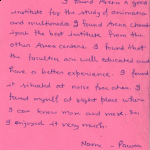 I found Arena a good
institute for the study of animation
and multimedia. I found Arena Chand
-igarh the best institute from the
other Arena centers. I found that
the faculties are well educated and
have a better experience. I found
it situated at noise free area. I
found myself at right place where
I can know more and more. So,
I enjoyed it very much.
Name - Pawan